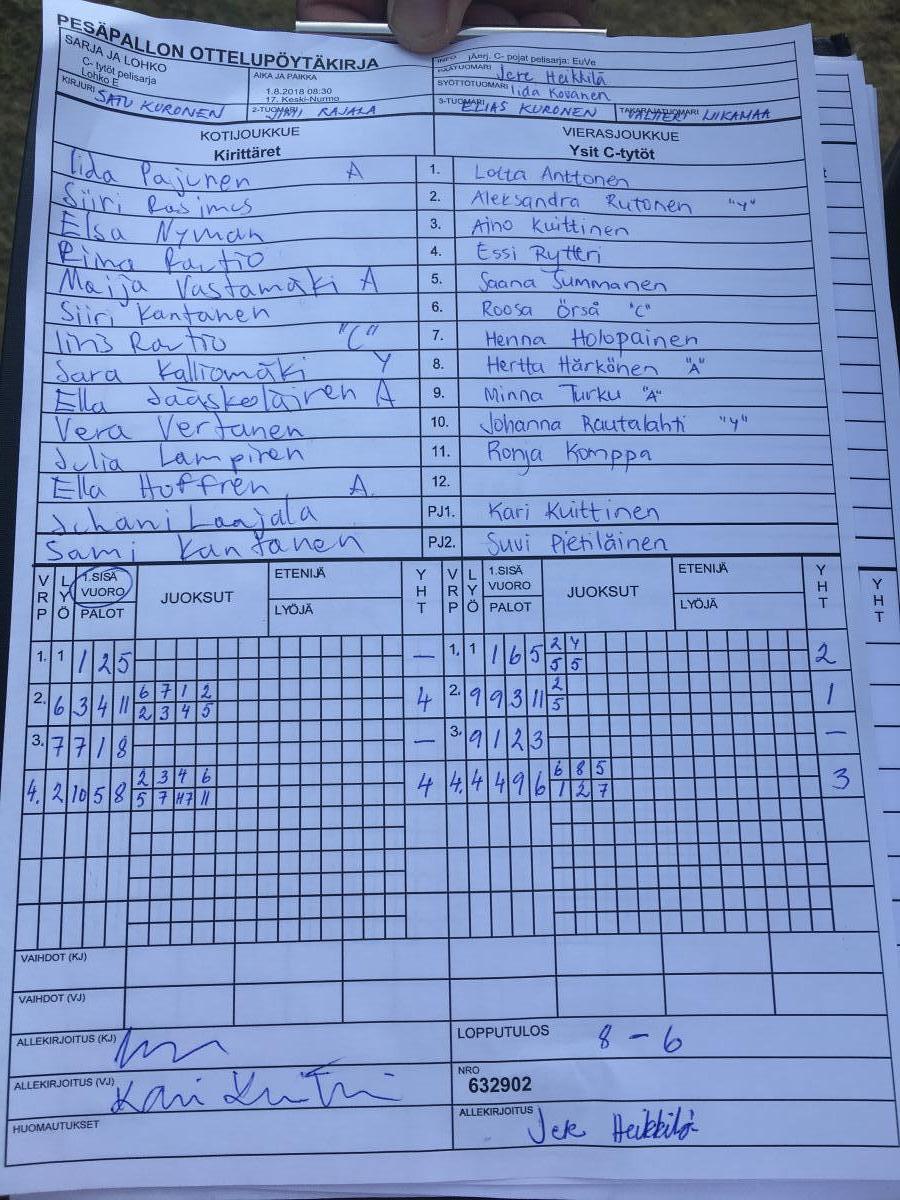 PESÄPALLON OTTELUPÖYTÄKIRJA
SARJA JA LOHKO
C- tytöt pelisarja
Lohko E
AIKA JA PAIKKA
1.8.2018 08:30
17. Keski-Nurmo
INFO jÄorj. C- pojat pelisarja: EuVe
PÄÄTUOMARI Jere Heikkilä
SYÖTTÖTUOMARI Iida Kovanen
KIRJURI SATU KURONEN
2-TUOMARI JIMI RAJALA
3-TUOMARI ELIAS KURONEN
TAKARAJATUOMARI VALTTERI LIIKAMAA
KOTIJOUKKUE
Kirittäret
VIERASJOUKKUE
Ysit C-tytöt
Iida Pajunen A 1. Lotta Anttonen
Siiri Rasimus 2. Aleksandra Rutonen "Y"
Elsa Nyman 3. Aino Kuittinen
Riina Rautio 4. Essi Rytteri
Maija Vastamäki A 5. Saana Summanen
Siiri Kantanen 6. Roosa Örså "C"
Iiris Rautio "C" 7. Henna Holopainen
Sara Kalliomäki Y 8. Hertta Härkönen "A"
Ella Jääskeläinen A 9. Minna Turku "A"
Vera Vertanen 10. Johanna Rautalahti "Y"
Julia Lampinen 11. Ronja Komppa
Ella Hoffren A 12.
Juhani Laajala PJ1. Kari Kuittinen
Sami Kantanen PJ2. Suvi Pietiläinen
VRP LYÖ 1.SISÄ VUORO PALOT JUOKSUT ETENIJÄ LYÖJÄ YHT VRP LYÖ 1.SISÄ VUORO PALOT JUOKSUT ETENIJÄ LYÖJÄ YHT
YHT
1. 1 1 2 5 — 1. 1 1 6 5 2 4 2
5 5
2. 6 3 4 11 6 7 1 2 4 2. 9 9 3 11 2 1
2 3 4 5 5
3. 7 7 1 8 — 3. 9 1 2 3 —
4. 2 10 5 8 2 3 4 6 4 4. 4 4 9 6 6 8 5 3
5 7 7 11 1 2 7
VAIHDOT (KJ)
VAIHDOT (VJ)
ALLEKIRJOITUS (KJ)
LOPPUTULOS 8 - 6
ALLEKIRJOITUS (VJ) Kari Kuittinen
NRO
632902
HUOMAUTUKSET
ALLEKIRJOITUS Jere Heikkilä